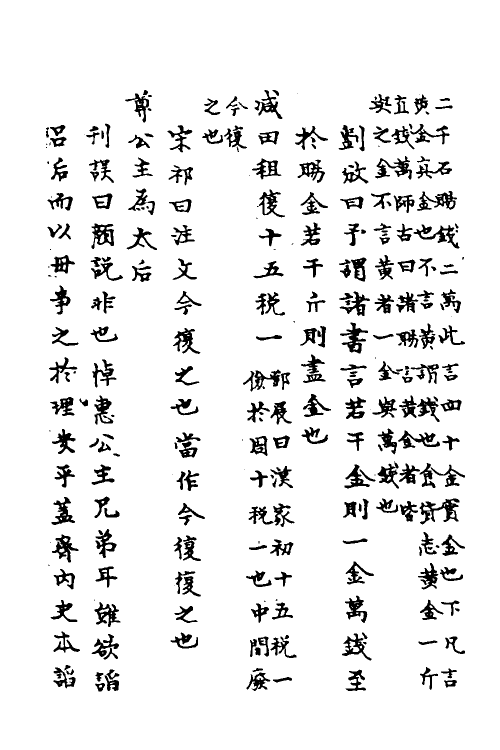 二千石賜錢二萬此言四十金實金也下凡言
黃金真金也不言黃謂錢也食貨志黃金一斤
直錢萬師古曰諸賜言黃金者皆
與之金不言黃者一金與萬錢也
劉攽曰予謂諸書言若干金則一金萬錢至
於賜金若干斤則盡金也
減田租復十五税一
鄧展曰漢家初十五税一
儉於周十税一也中間廢
今復
之也
宋祁曰注文今復之也當作今復復之也
尊公主為太后
刊誤曰顏説非也悼惠公主兄弟耳雖欲謟
呂后而以母事之於理安乎蓋齊內史本謟